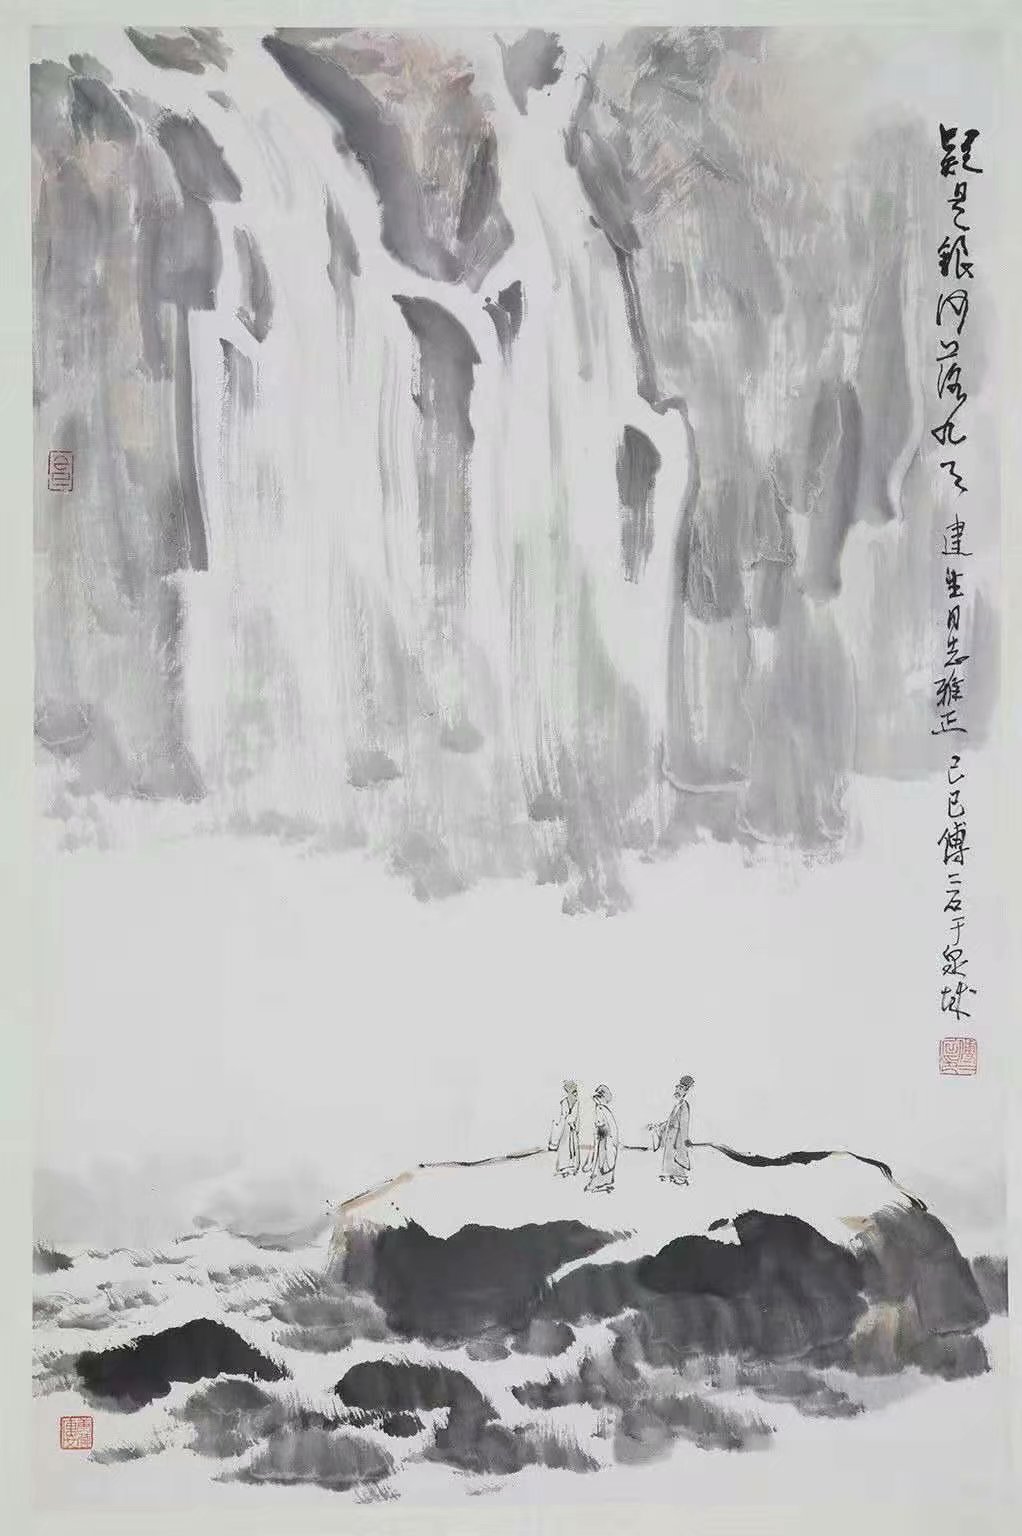 疑是銀河落九天 建生同志雅正 己巳傅二石于泉城